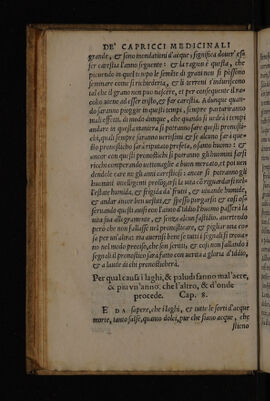 DE' CAPRICCI MEDICINALI
grande, & sono inondationi d'acque, significa douer' es-
ser carestia l'anno seguente: & la ragion è questa, che
piouendo in quel tempo le semēte di grani non si possono
seminare come si richiederia, & li terreni s'indurisceno
tal che il grano non puo nascere, et per conseguente il ra-
colto uiene ad esser tristo, & far carestia. & dunque quan-
do saranno pioggie in questi tempi, sempre portaranno
mali effetti. di modo adunque, che quando si uedra i tempi
andare in questa maniera si potranno far questi pronosti-
chi, quali sempre saranno uerissimi, & se alcuno farà que-
sto pronostico sarà riputato profeta, ò santo huomo: &
ancor con questi pronostichi si potranno gli huomini far si
ricchi comperando uettouaglie à buon mercato, et poi uen
derle care ne gli anni carestiosi: ancor si potranno gli
huomini intelligenti prolōgarsi la uita cō riguardarsi nel
l'estate humida, & frigida da frutti, & uiuande humide,
& andar ancor ben uestiti, & spesso purgarsi & cosi os-
seruando questi auisi con l'aiuto d'Iddio l'huomo passerà la
uita sua allegramente, & senza alcun fastidio. auertendo
però che non fallasse nel pronosticare, & pigliar una co
sa per un'altra: ma auertisse bene in questi tempi ch'io no
to nel modo preciso, che sen senti, & cosi non fallando i
segnali il pronostico sarà fatto con uerità à gloria d'Iddio,
& à laude di chi pronosticherà.
Per qual causa i laghi, & paludi fanno mal'aere,
& piu vn'anno, che l'altro, & d'onde
procede. Cap. 8.
E DA sapere, che i laghi, & tutte le sorti d'acque
morte, tanto salse, quanto dolci, pur che siano acque, che
stieno